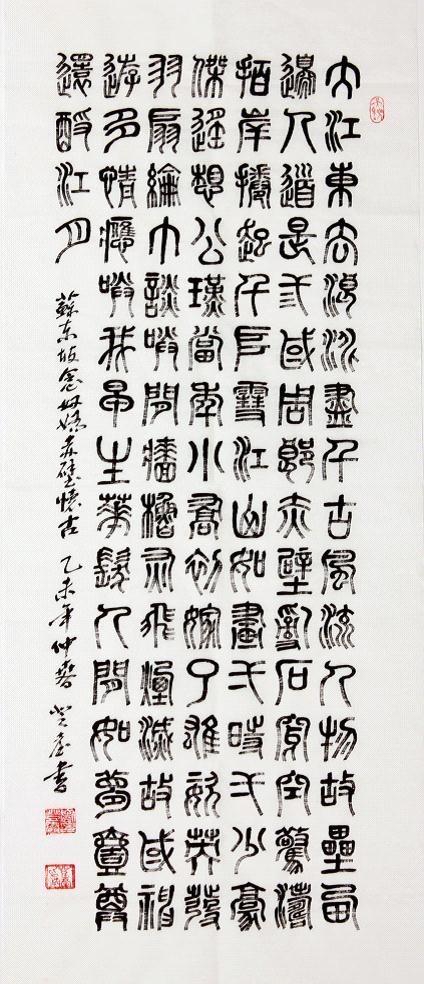 大江東去浪淘盡千古風流人物故壘西
邊人道是弎國周郎赤壁亂石穿空驚濤
拍岸捲起千堆雪江山如畫弌時多少豪
傑遙想公瑾當年小喬初嫁了雄姿英發
羽扇綸巾談笑間檣櫓灰飛煙滅故國神
遊多情應笑我早生華髮人間如夢壹尊
還酹江月 蘇東坡念奴嬌赤壁懷古 乙未年仲春 書